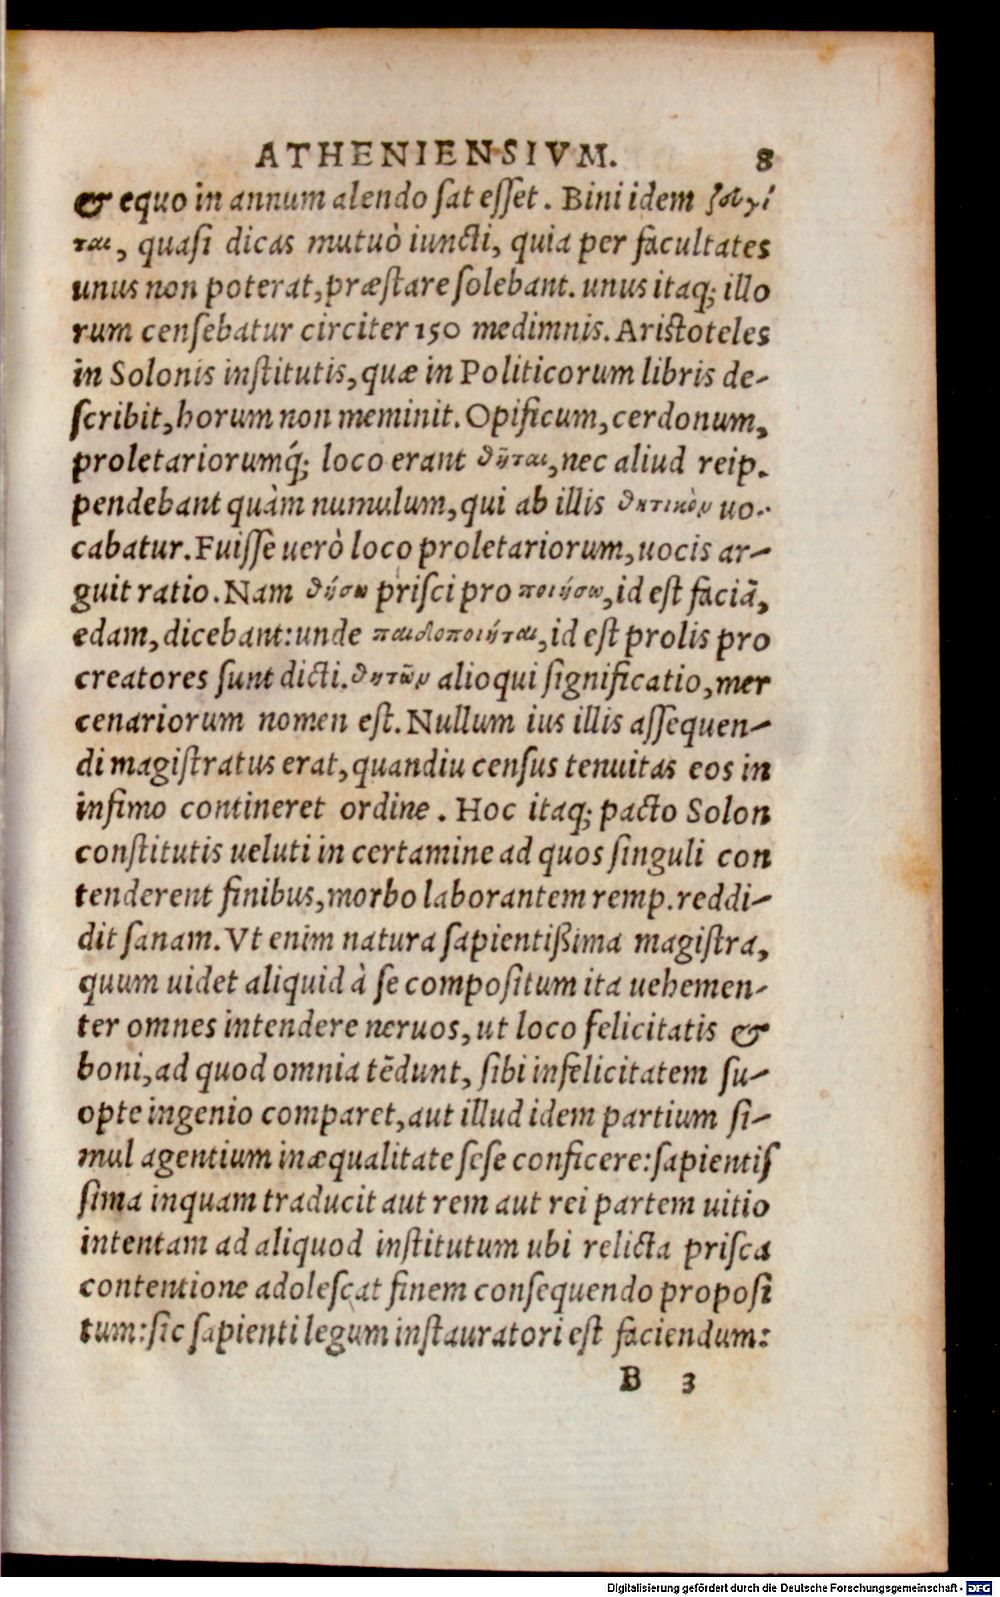 ATHENIENSIVM. 8
& equo in annum alendo sat esset. Bini idem ζευγί
ται, quasi dicas mutuò iuncti, quia per facultates
unus non poterat, præstare solebant. unus itaq; illo
rum censebatur circiter 150 medimnis. Aristoteles
in Solonis institutis, quæ in Politicorum libris de-
scribit, horum non meminit. Opificum, cerdonum,
proletariorumq́; loco erant θῆται, nec aliud reip.
pendebant quàm numulum, qui ab illis θητικὸν uo-
cabatur. Fuisse uerò loco proletariorum, uocis ar-
guit ratio. Nam θήσω prisci pro ποιήσω, id est faciā,
edam, dicebant: unde παιδοποιήται, id est prolis pro
creatores sunt dicti. θητῶν alioqui significatio, mer
cenariorum nomen est. Nullum ius illis assequen-
di magistratus erat, quandiu census tenuitas eos in
infimo contineret ordine. Hoc itaq; pacto Solon
constitutis ueluti in certamine ad quos singuli con
tenderent finibus, morbo laborantem remp. reddi-
dit sanam. Vt enim natura sapientißima magistra,
quum uidet aliquid à se compositum ita uehemen-
ter omnes intendere neruos, ut loco felicitatis &
boni, ad quod omnia tēdunt, sibi infelicitatem su-
opte ingenio comparet, aut illud idem partium si-
mul agentium inæqualitate sese conficere: sapientis
sima inquam traducit aut rem aut rei partem uitio
intentam ad aliquod institutum ubi relicta prisca
contentione adolescat finem consequendo proposi
tum: sic sapienti legum instauratori est faciendum:
B 3
Digitalisierung gefördert durch die Deutsche Forschungsgemeinschaft - DFG